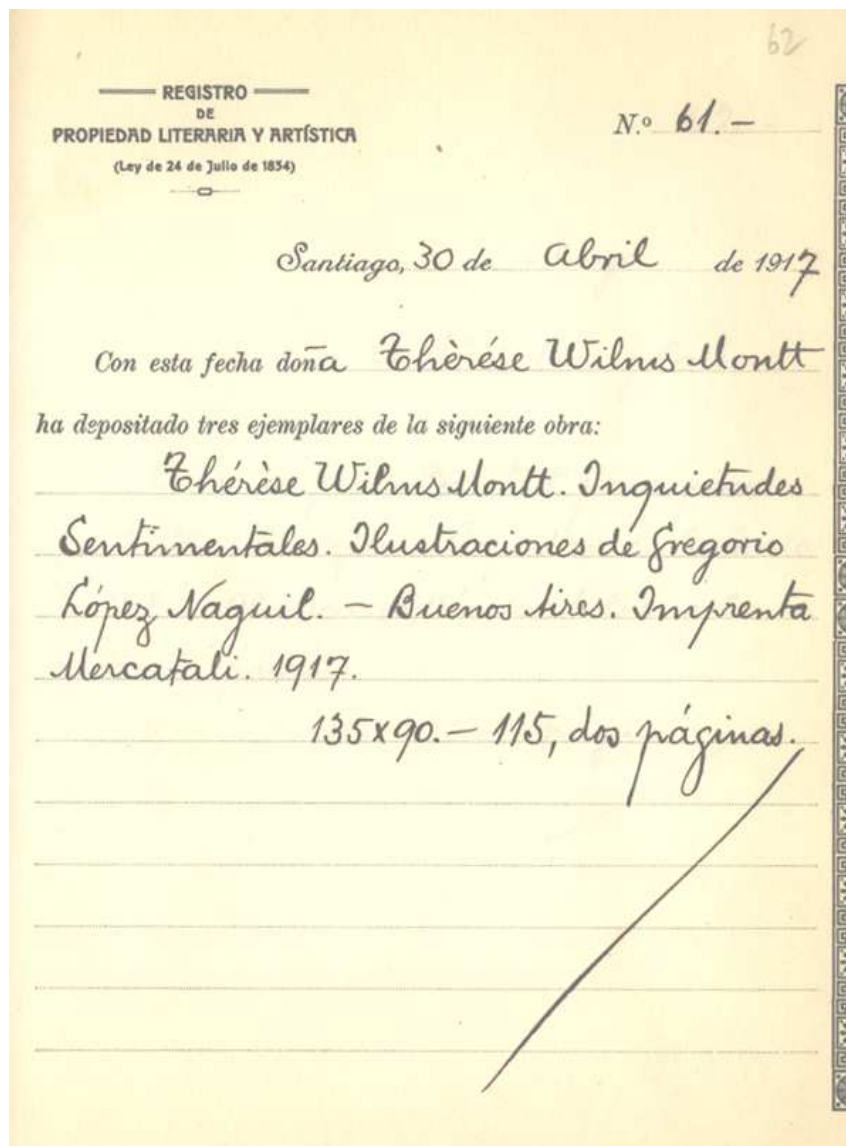 62
REGISTRO
DE
PROPIEDAD LITERARIA Y ARTÍSTICA
(Ley de 24 de Julio de 1834)
N.º 61.—
Santiago, 30 de Abril de 1917
Con esta fecha doña Thèrése Wilms Montt
ha depositado tres ejemplares de la siguiente obra:
Thérèse Wilms Montt. Inquietudes
Sentimentales. Ilustraciones de Gregorio
López Naguil. — Buenos Aires. Imprenta
Mercatali. 1917.
135x90.— 115, dos páginas.